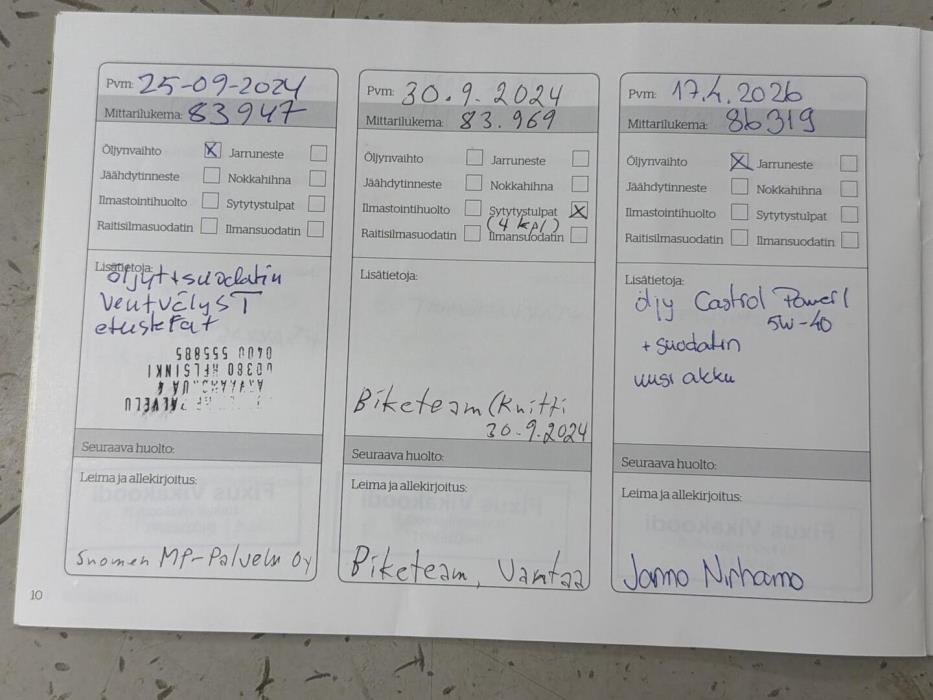 Pvm: 25-09-2024
Mittarilukema: 83947
Öljynvaihto X Jarruneste
Jäähdytinneste Nokkahihna
Ilmastointihuolto Sytytystulpat
Raitisilmasuodatin Ilmansuodatin
Lisätietoja:
öljyt+suodatin
etuskFat
0400 555885
00380 HELSINKI
PALVELU
Seuraava huolto:
Leima ja allekirjoitus:
Suomen MP-Palvelu Oy
Pvm: 30.9.2024
Mittarilukema: 83.969
Öljynvaihto Jarruneste
Jäähdytinneste Nokkahihna
Ilmastointihuolto Sytytystulpat X
(4 kpl)
Raitisilmasuodatin Ilmansuodatin
Lisätietoja:
Biketeam (Kuitti
30.9.2024
Seuraava huolto:
Leima ja allekirjoitus:
Biketeam, Vantaa
Pvm: 17.4.2026
Mittarilukema: 86319
Öljynvaihto X Jarruneste
Jäähdytinneste Nokkahihna
Ilmastointihuolto Sytytystulpat
Raitisilmasuodatin Ilmansuodatin
Lisätietoja:
öljy Castrol Power1
5W-40
+ suodatin
uusi akku
Seuraava huolto:
Leima ja allekirjoitus:
Jarmo Nirhamo
10